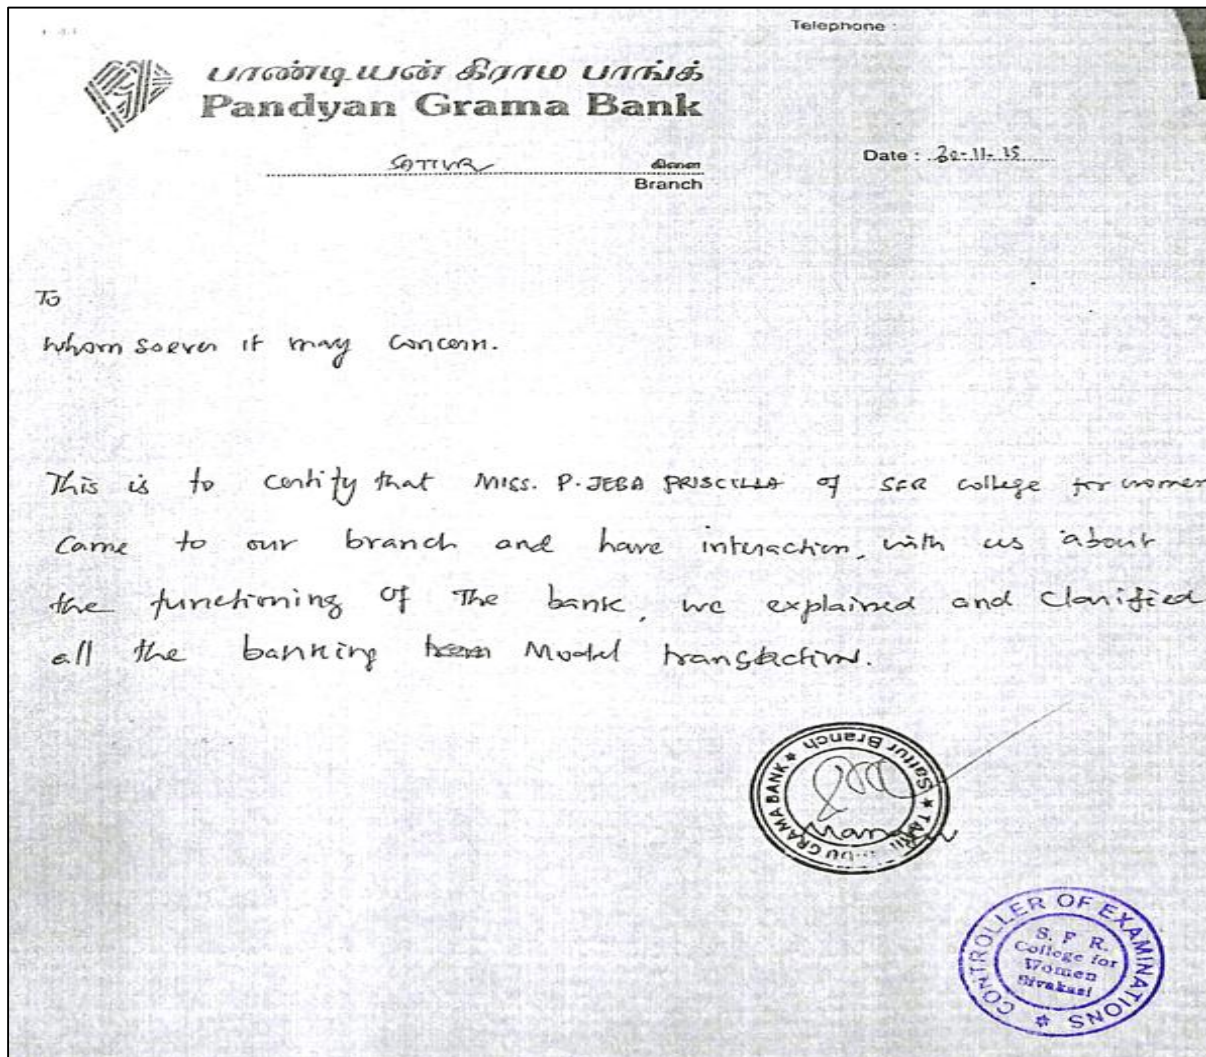 Telephone :
பாண்டியன் கிராம பாங்க்
Pandyan Grama Bank
SATTUR கிளை
Branch
Date :
To
whom soever it may concern.
This is to certify that MISS. P. JEBA PRISCILLA of SFR college for women
came to our branch and have interaction, with us about
the functioning of The bank, we explained and clarified
all the banking Model transactions.
★ TAMILNADU GRAMA BANK ★ Sattur Branch
Manager
CONTROLLER OF EXAMINATIONS
S. F. R.
College for
Women
Sivakasi